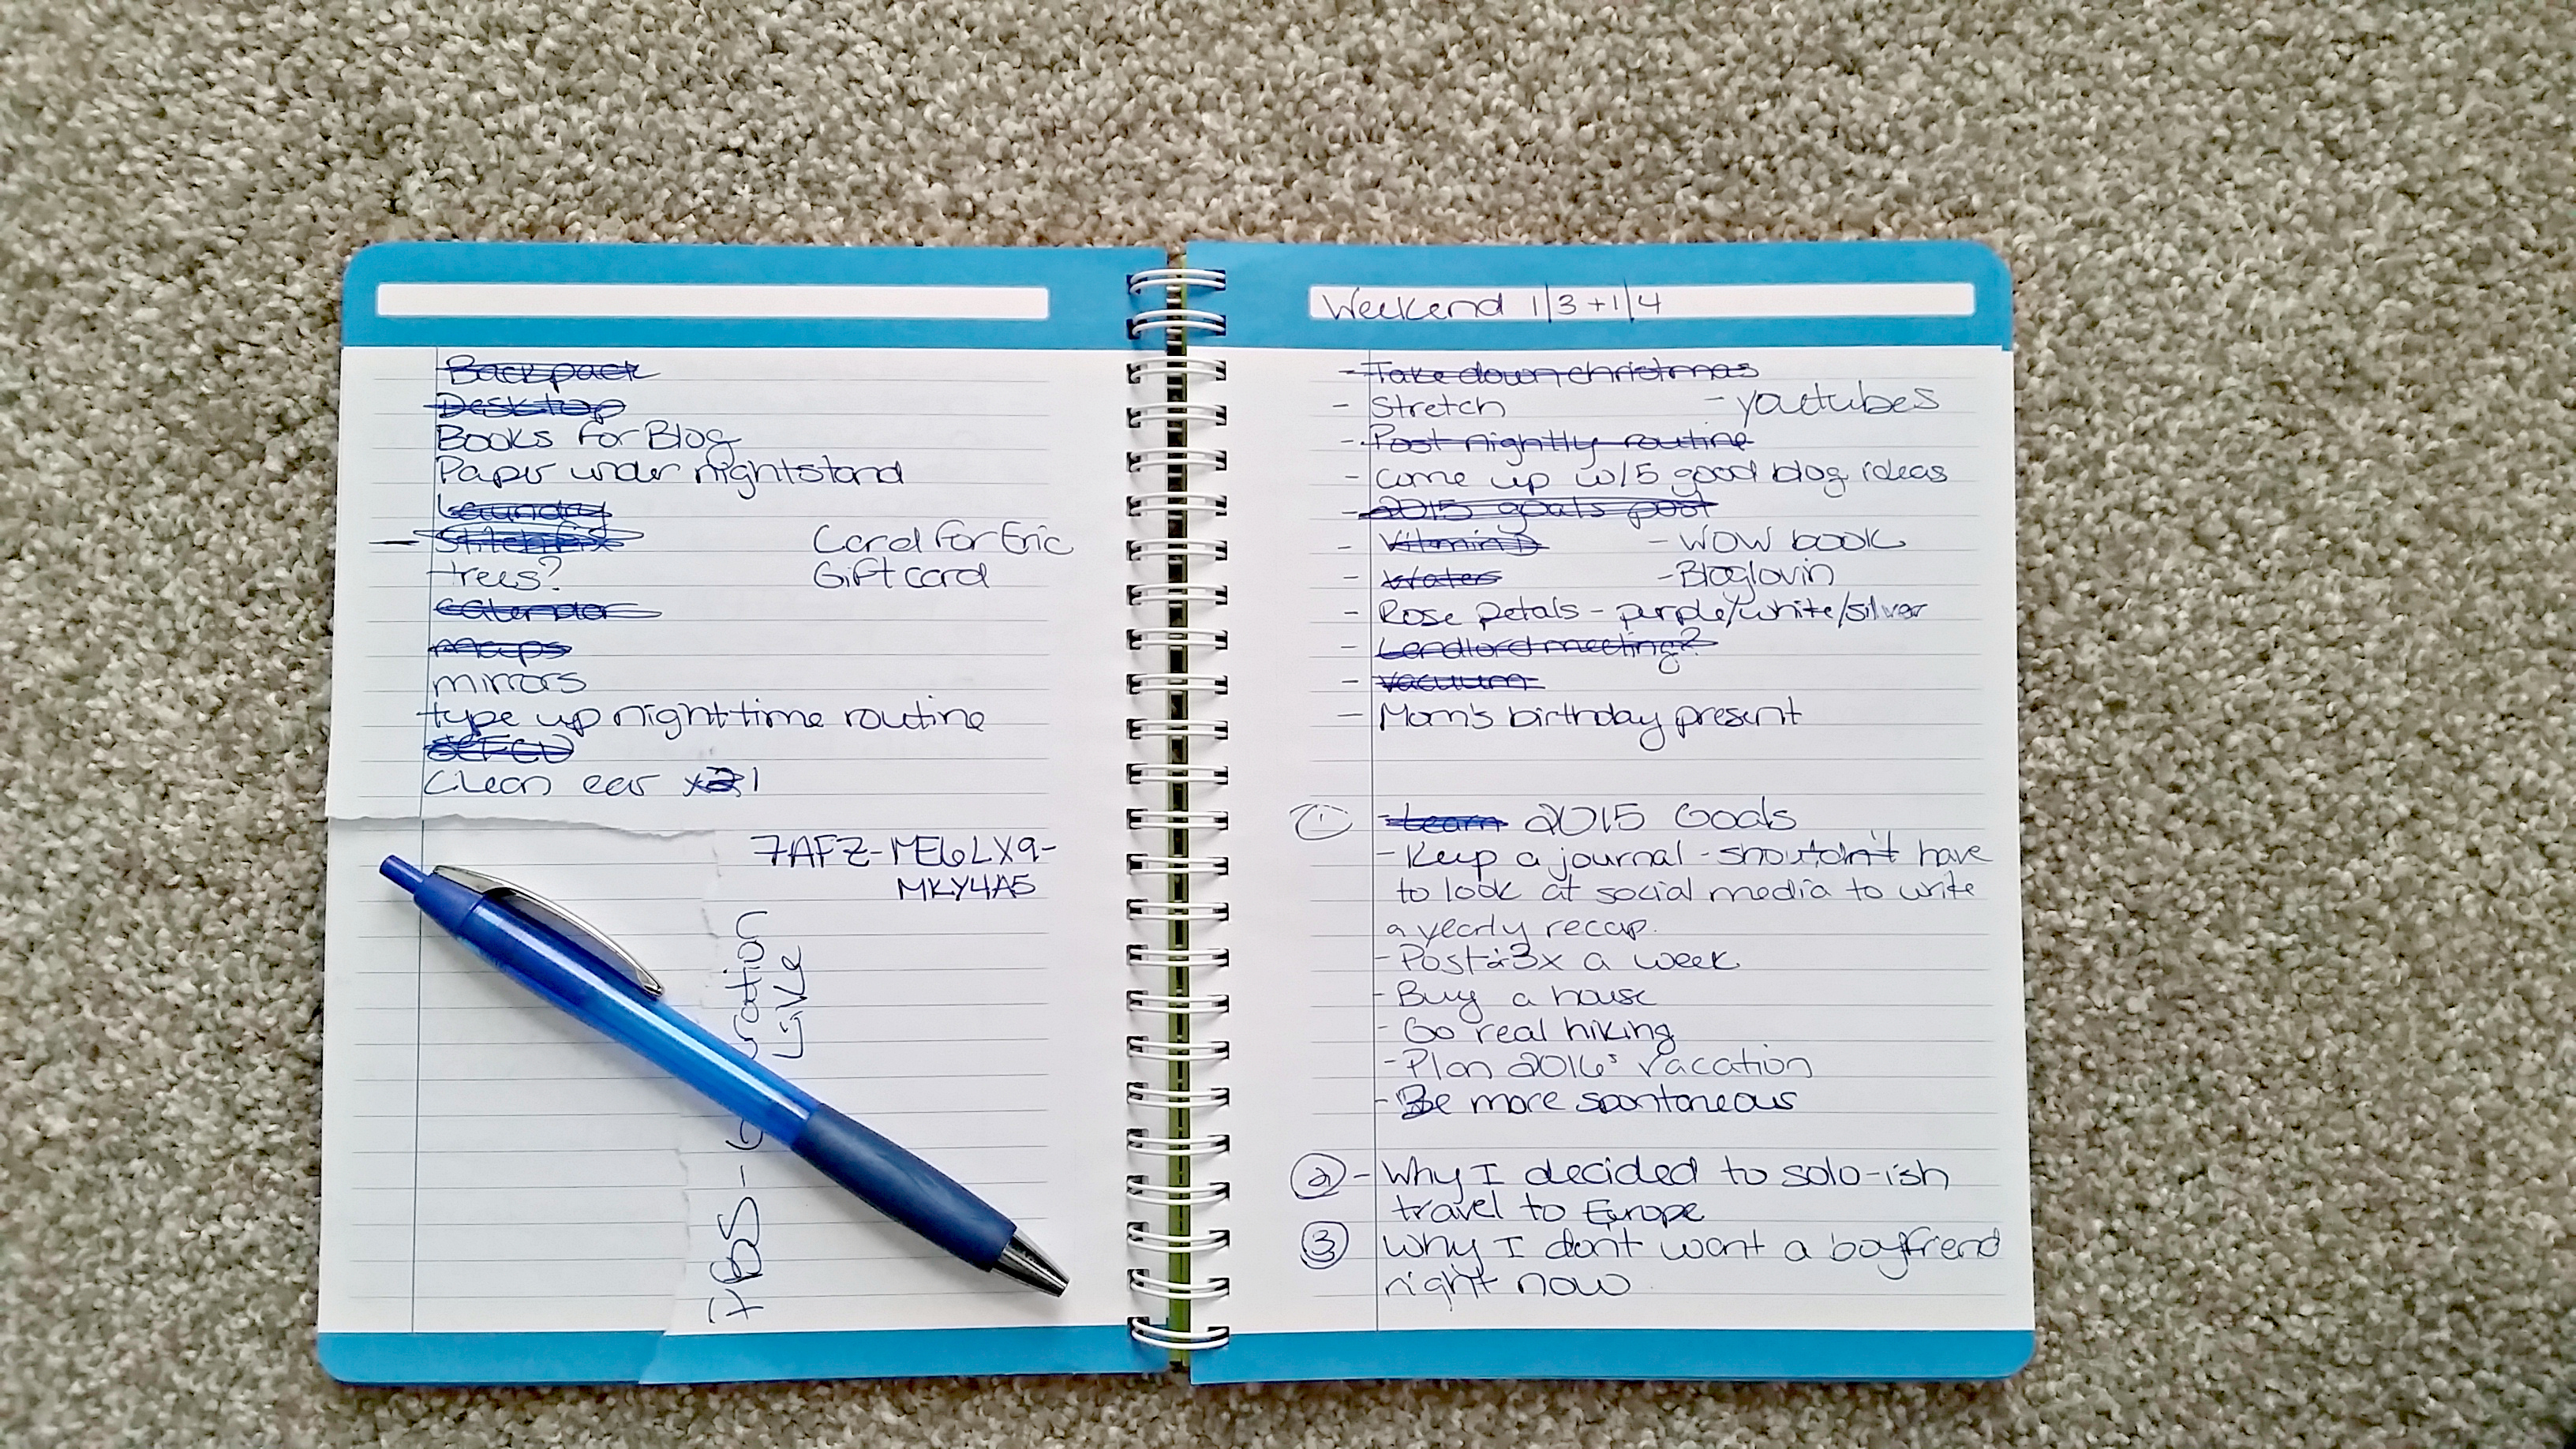 Backpack
Desktop
Books for Blog
Paper under nightstand
Laundry
Stitch Fix
trees?
Card for Eric
Gift card
Calendar
maps
mirrors
type up nighttime routine
Clean ear x2 1
7AFZ-ME6LX9-
MKY4A5
PBS - ration
Live
Weekend 1/3 + 1/4
- Take down christmas
- Stretch - youtubes
- Post nightly routine
- come up w/ 5 good blog ideas
- 2015 goals post
- Vitamin D - WOW book
- Water - Bloglovin
- Rose petals - purple/white/silver
- Landlord meeting?
- vacuum
- Mom's birthday present
① - Learn 2015 Goals
- Keep a journal - shouldn't have
to look at social media to write
a yearly recap.
- Post 3x a week
- Buy a house
- Go real hiking
- Plan 2016's vacation
- Be more spontaneous
② - Why I decided to solo-ish
travel to Europe
③ Why I don't want a boyfriend
right now